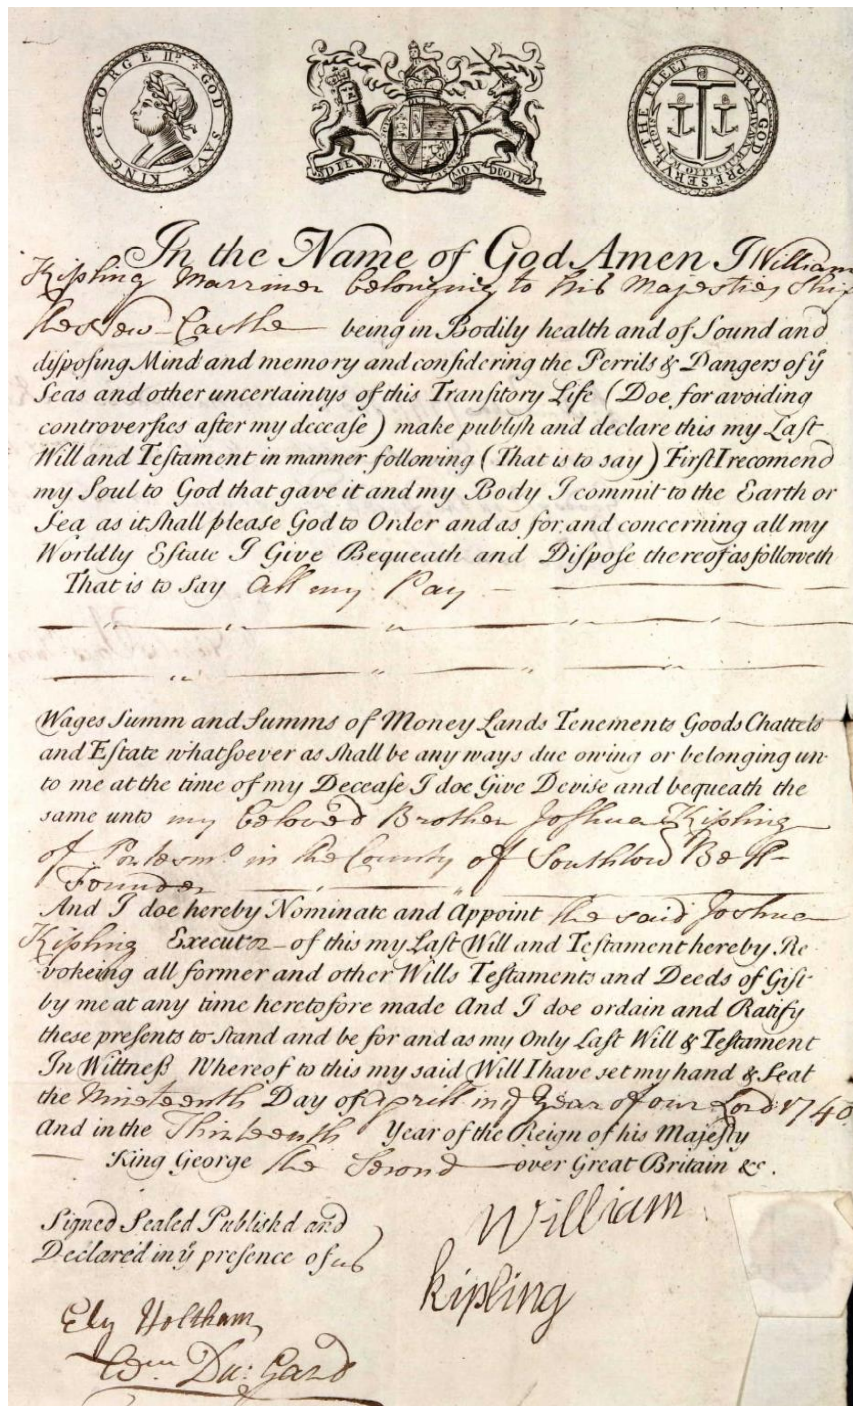 KING GEORGE IID + GOD SAVE
DIEU ET MON DROIT
THE FLEET PRAY GOD PRESERVE
In the Name of God Amen I William
Kipling Marriner belonging to his Majesties Ship
the New-Castle being in Bodily health and of Sound and
disposing Mind and memory and considering the Perrils & Dangers of yͤ
Seas and other uncertaintys of this Transitory Life (Doe for avoiding
controversies after my decease) make publish and declare this my Last
Will and Testament in manner following (That is to say) First I recomend
my Soul to God that gave it and my Body I commit to the Earth or
Sea as it shall please God to Order and as for and concerning all my
Worldly Estate I Give Bequeath and Dispose thereof as followeth
That is to say All my Pay
Wages Summ and Summs of Money Lands Tenements Goods Chattels
and Estate whatsoever as shall be any ways due owing or belonging un-
to me at the time of my Decease I doe Give Devise and bequeath the
same unto my beloved Brother Joshua Kipling
of Portsmᵒ in the County of Southton Bell-
Founder
And I doe hereby Nominate and Appoint the said Joshua
Kipling Executor of this my Last Will and Testament hereby Re-
vokeing all former and other Wills Testaments and Deeds of Gift
by me at any time heretofore made And I doe ordain and Ratify
these presents to stand and be for and as my Only Last Will & Testament
In Wittness Whereof to this my said Will I have set my hand & Seal
the Nineteenth Day of Aprill in yͤ Year of our Lord 1740
And in the Thirteenth Year of the Reign of his Majesty
King George the Second over Great Britain &c.
Signed Sealed Publish'd and
Declared in yͤ presence of us
William
Kipling
Ely Holtham
Wm Du: Gard